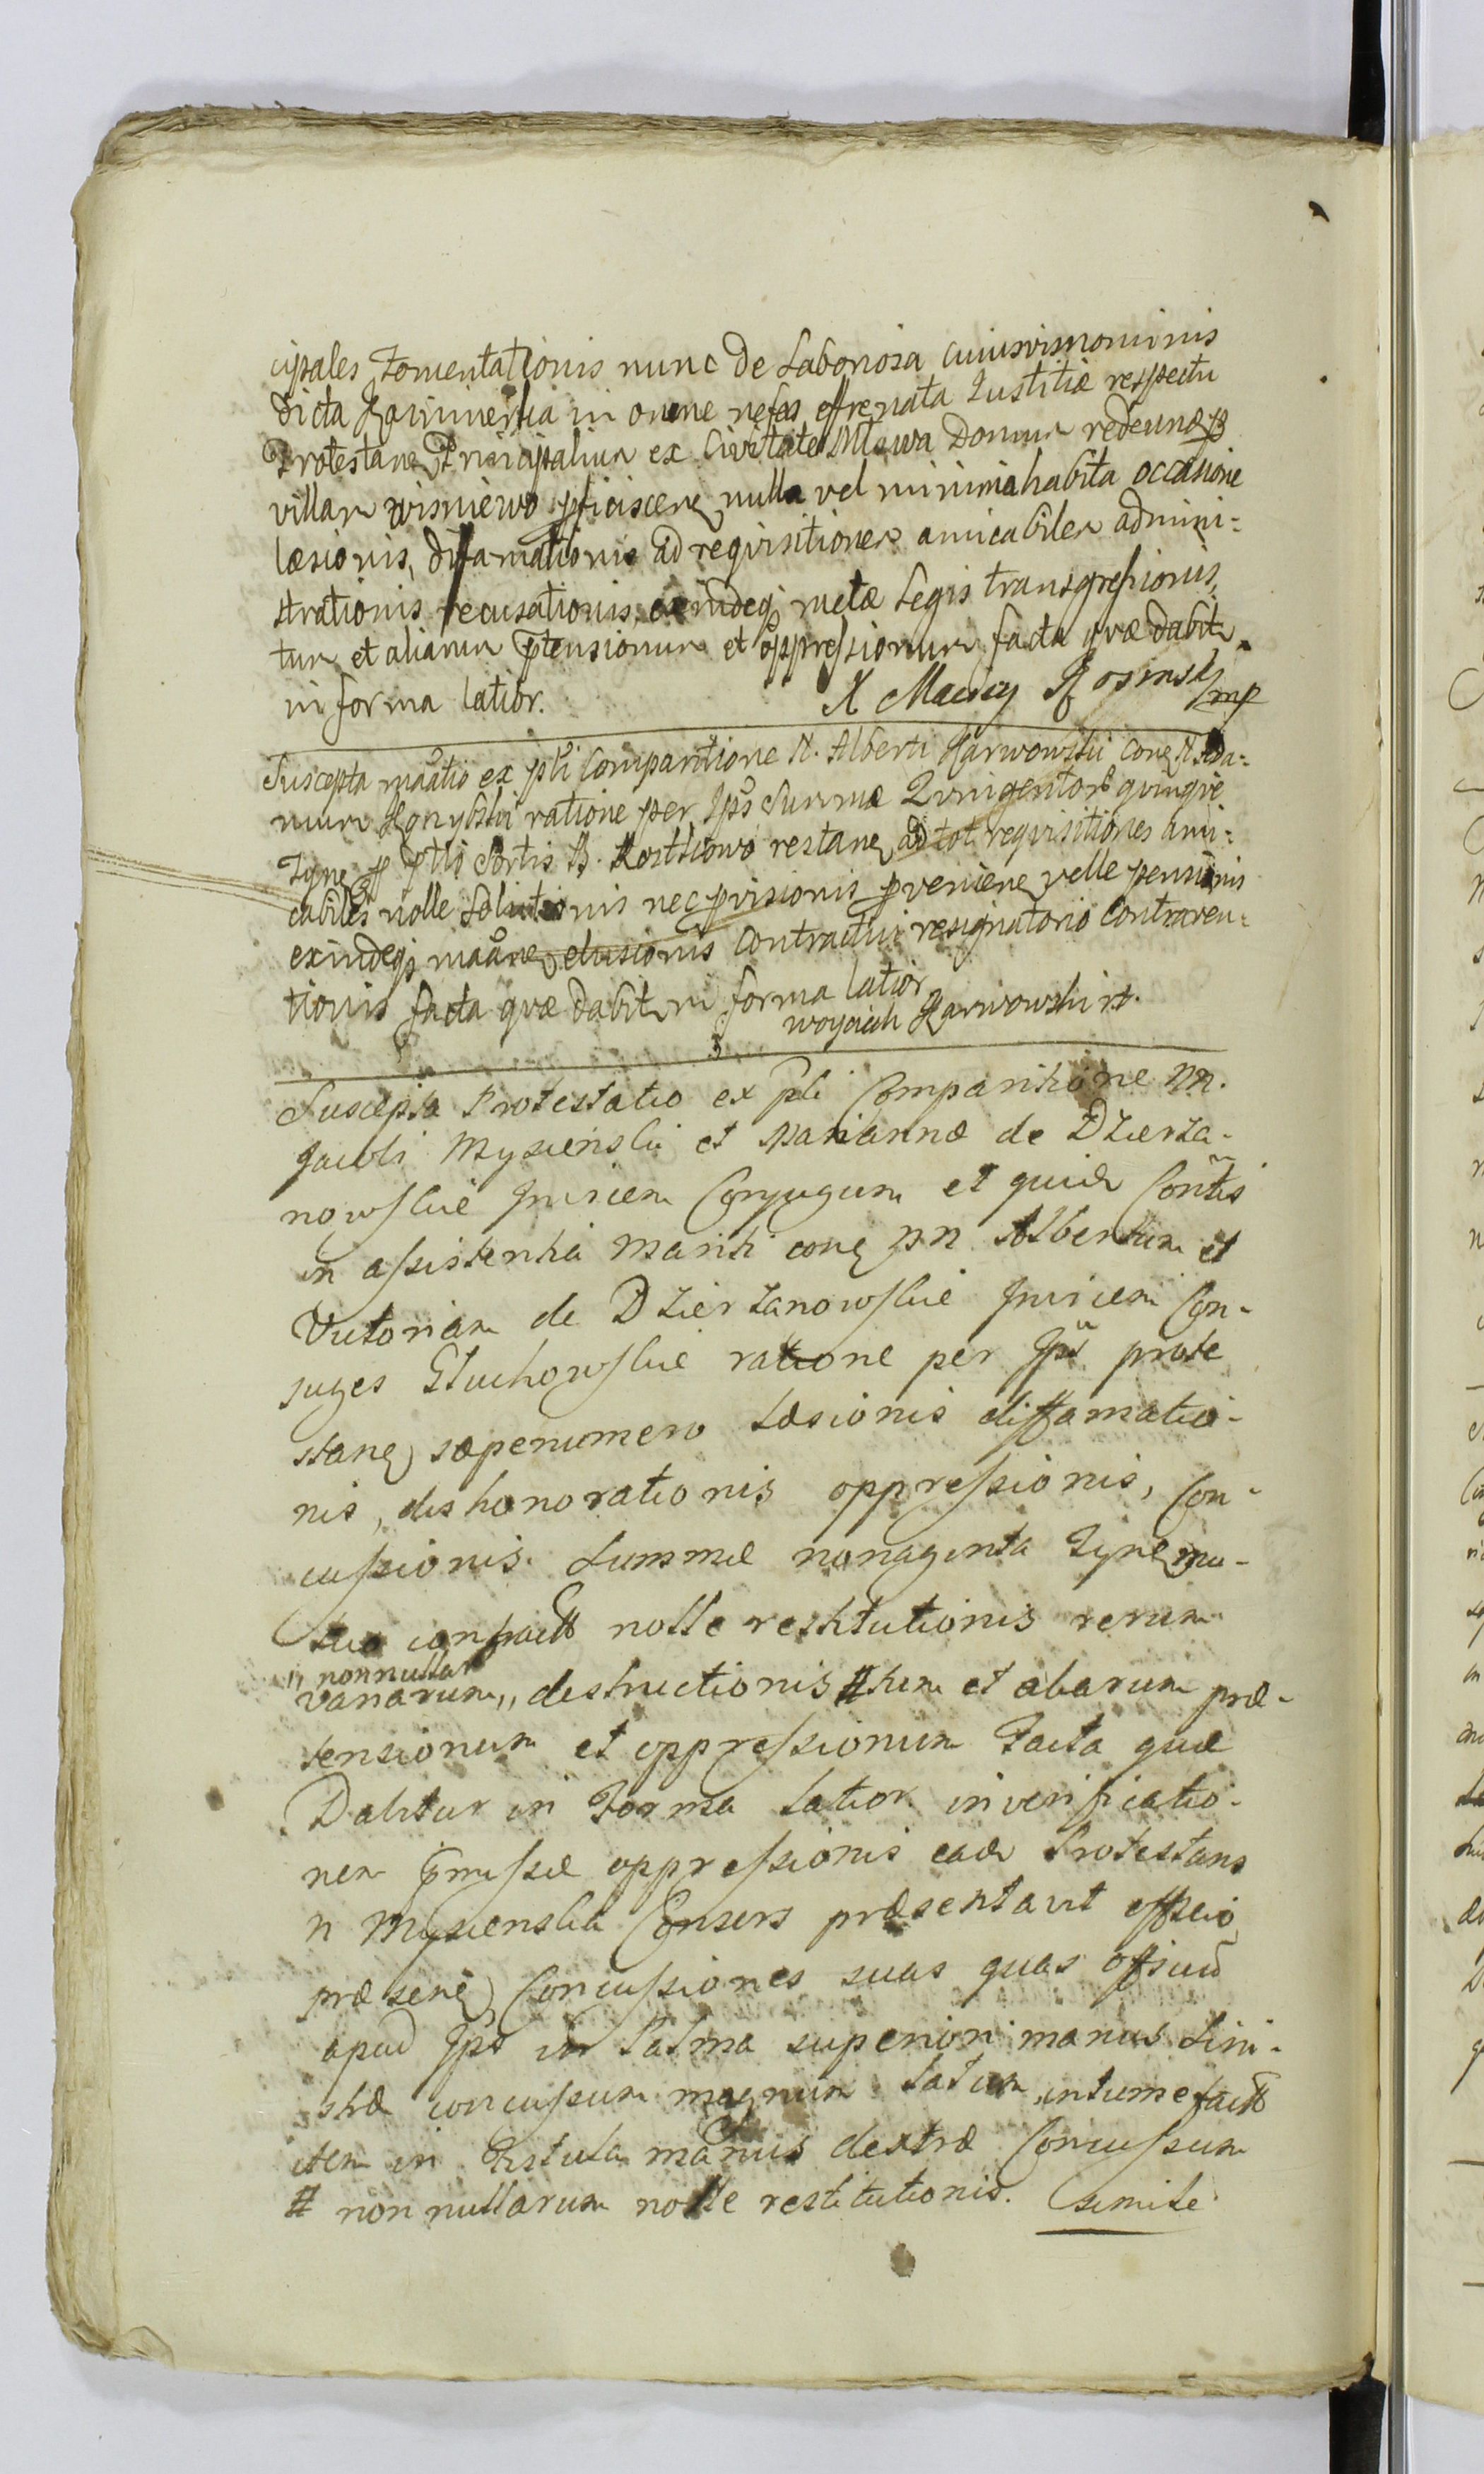 cipales Fomentationis nunc de Laboriosa cuiusvis nominis
dicta in omne nefas effrenata Iustitiæ respectu
Protestanę Principalium ex Civitate Mława Domum redeunę p
villam Wisniewo pficiscenę nulla vel minima habita occasione
læsionis, difamationis ad reqvisitionem amicabilem admini-
strationis recusationis, exindeqȝ metæ Legis transgressionis,
tum et aliarum ptensionum et oppressionum facta qvæ dabitr
in forma latior. X Maciey Rosinski mp
Suscepta mãtio ex pñti Comparitione N. Alberti Karwowski conę N. Ada-
mum ratione per Ips Summæ Qvingentor qvinqve
Tynf Sortis B. Kosttowo restanę ad tot reqvisitiones ami-
cabiles nolle Solutionis nec pvisionis pveniene velle pensionis
exindeqȝ elusionis Contractui resignatorio Contraven-
tionis facta qvæ dabitr in forma latior
woyciech Karwowski
Suscepta Protestatio ex pñti Comparitione NN.
Jacobi Mysienski et Marianna de Dzierza-
nowskie Invicem Conjugum et quidem Contis
in assistentia Mariti conę NN. Albertum et
Victoriam de Dzierzanowskie Invicem Con-
juges Głuchowskie ratione per Ips prote
stanę sæpenumero Læsionis diffamatio-
nis, dishonorationis oppressionis, Con-
cussionis. Summæ nonaginta Tynf mu-
tuo nolle restitutionis rerum
" nonnullar
variarum " destructionis # tum et aliarum præ-
tensionum et oppressionum Facta quæ
Dabitur in Forma latior. in verificatio-
nem pmissæ oppressionis eadem Protestans
N Mysienska Consors præsentavit officio
præsenę Concussiones suas quas officium
apud Ips in Palma superiori manus Sini-
stræ concussum magnum latum intumefactt
item in Fistula manus dextræ Concussum
# non nullarum nolle restitutionis. simile